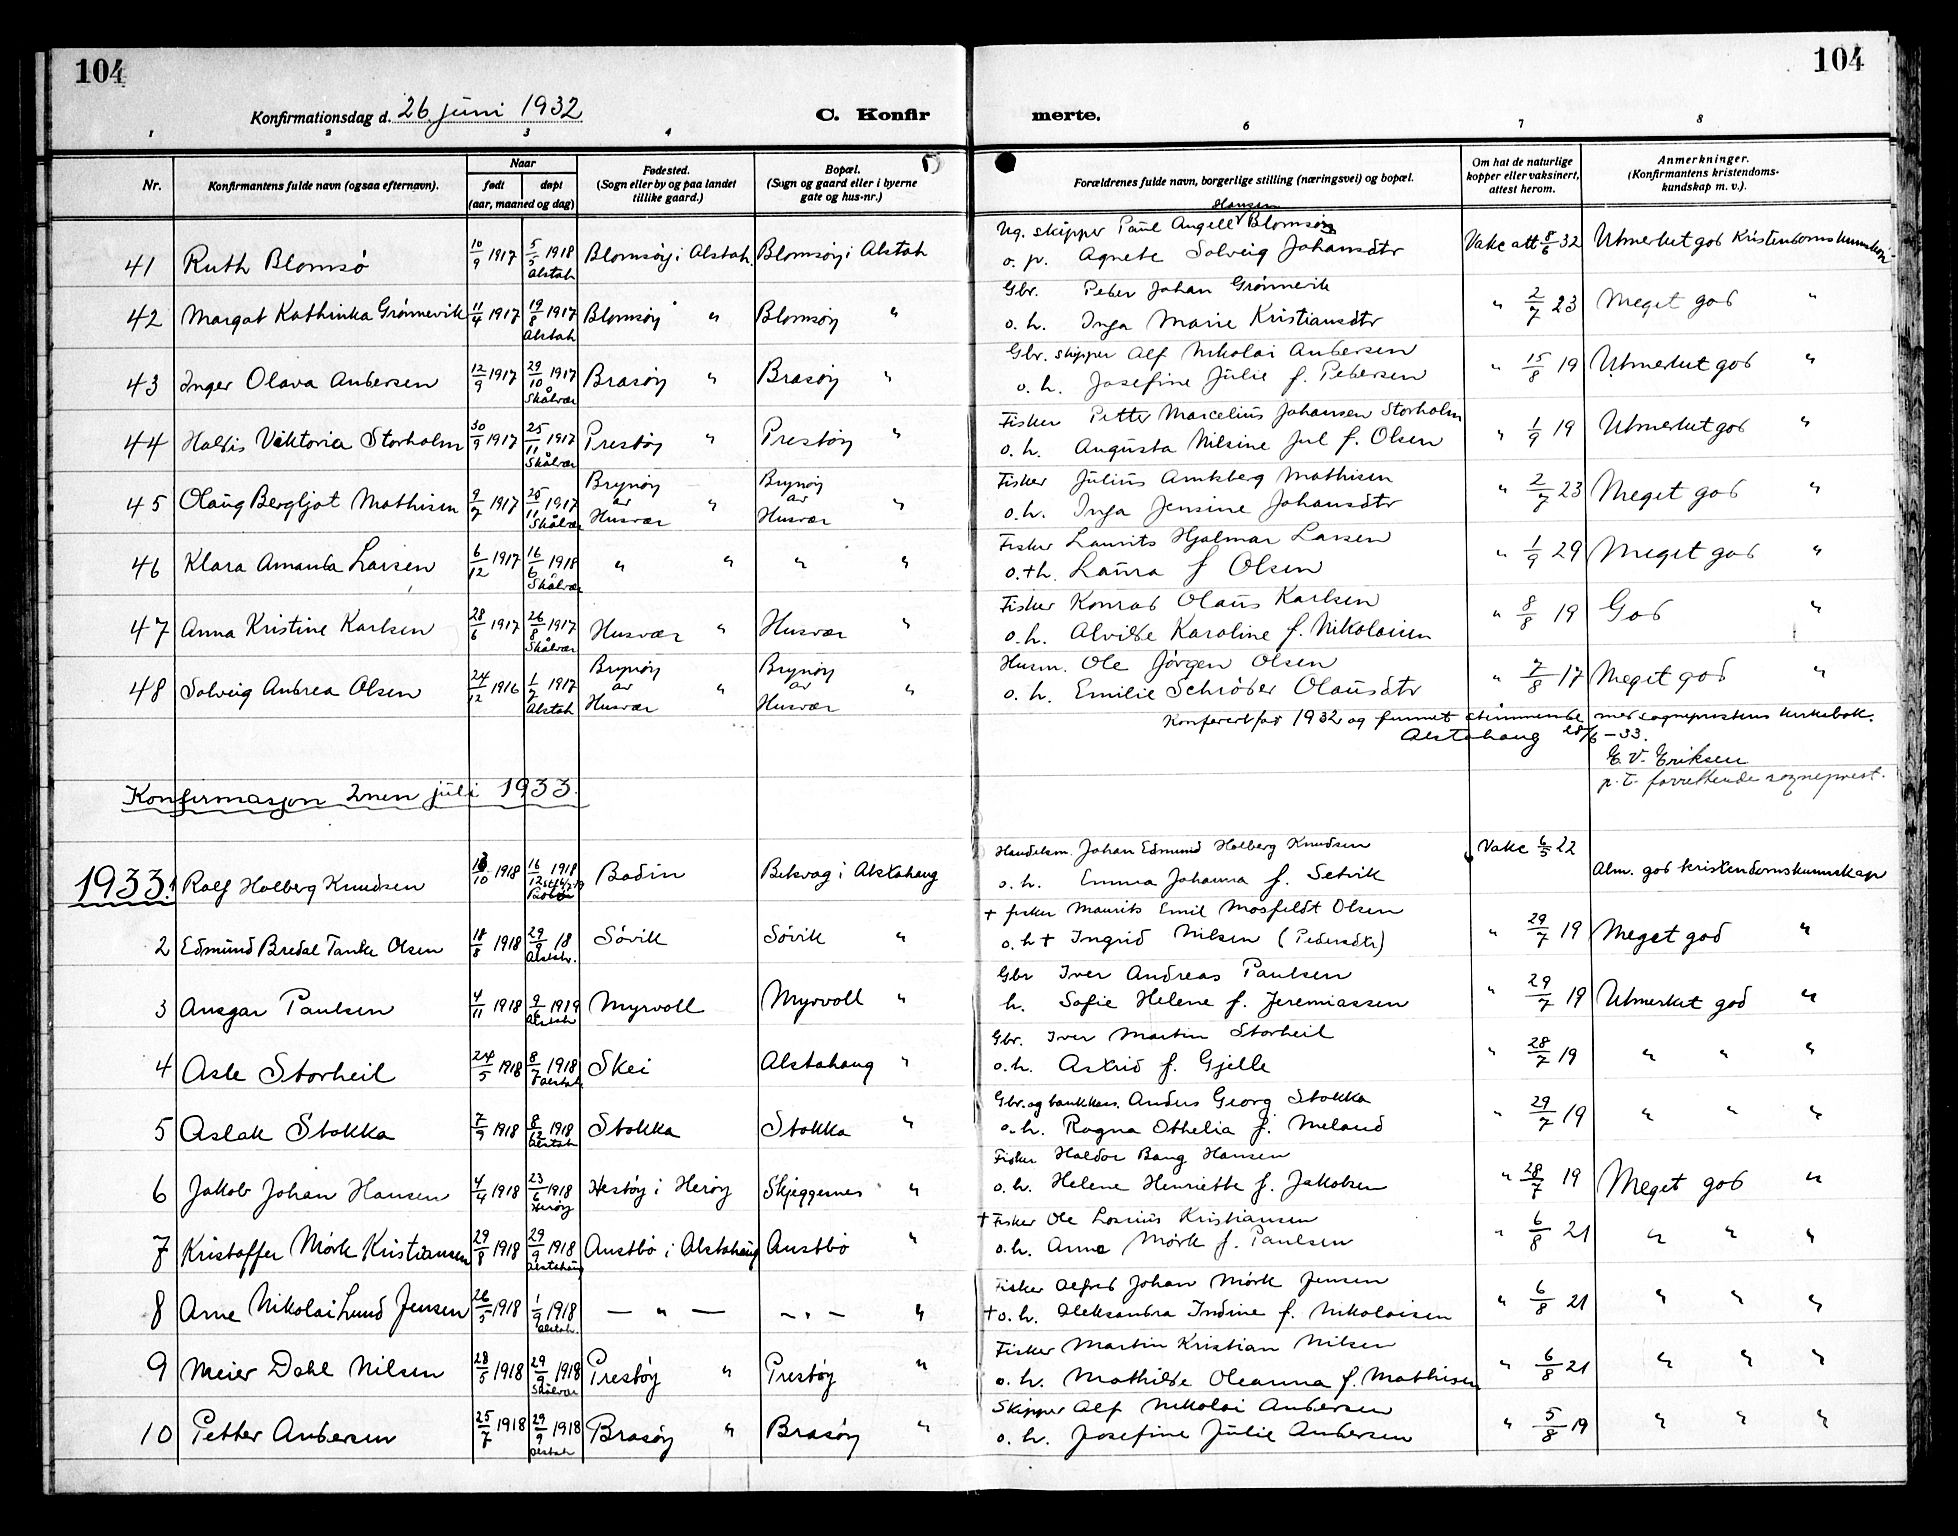 104
104
Konfirmationsdag d. 26 juni 1932
C. Konfir
merte.
1 2 3 4 6 7 8
Nr.
Konfirmantens fulde navn (ogsaa efternavn).
Naar
født døpt
(aar, maaned og dag)
Fødested.
(Sogn eller by og paa landet
tillike gaard.)
Bopæl.
(Sogn og gaard eller i byerne
gate og hus-nr.)
Forældrenes fulde navn, borgerlige stilling (næringsvei) og bopæl.
Om hat de naturlige
kopper eller vaksinert,
attest herom.
Anmerkninger.
(Konfirmantens kristendoms-
kundskap m. v.).
Hansen
Ug. skipper Paul Angell Blomsøy
41 Ruth Blomsø 10/9 1917 5/5 1918 Alstah Blomsøy i Alstah. Blomsøy i Alstah o. p. Agnete Solveig Johansdtr Vakc att 8/6 32 Utmerket god Kristendomskunnskap
Gbr. Peder Johan Grønnevik
42 Margot Kathinka Grønnevik 11/4 1917 19/8 1917 Alstah Blomsøy " Blomsøy " o. h. Inga Marie Kristiansdtr " 2/7 23 Meget god "
Gbr. skipper Alf Nikolai Andersen
43 Inger Olava Andersen 12/9 1917 29/10 1917 Skålvær Brasøy " Brasøy " o. h. Josefine Julie f. Pedersen " 15/8 19 Utmerket god "
Fisker Petter Marcelius Johansen Storholm
44 Haldis Viktoria Storholm 30/9 1917 25/11 1917 Skålvær Prestøy " Prestøy " o. h. Augusta Nilsine Jul f. Olsen " 1/9 19 Utmerket god "
Brynøy Brynøy Fisker Julius Amtsberg Mathisen
45 Olaug Bergljot Mathisen 9/7 1917 25/11 1917 Skålvær av " av " " 2/7 23 Meget god "
Husvær Husvær o. h. Inga Jensine Johansdtr
Fisker Laurits Hjalmar Larsen
46 Klara Amanda Larsen 6/12 1917 16/6 1918 Skålvær " " " " o. + h. Laura f Olsen " 1/9 29 Meget god "
Fisker Konrad Olaus Karlsen
47 Anna Kristine Karlsen 28/6 1917 26/8 1917 Skålvær Husvær " Husvær " o. h. Alvilde Karoline f. Nikolaisen " 8/8 19 God "
Brynøy Brynøy Husm. Ole Jørgen Olsen
48 Solveig Andrea Olsen 24/12 1916 1/7 1917 Alstah av " av " " 7/8 17 Meget god "
Husvær Husvær o. h. Emilie Schrøder Olausdtr
Konferert for 1932 og funnet stemmende med sogneprestens kirkebok.
Alstahaug 28/6 - 33.
E. V. Eriksen
p. t. forrettende sogneprest.
Konfirmasjon 2nen juli 1933.
Handelsm. Johan Edmund Holberg Knudsen Vakc 6/5 22
1933. 1 Rolf Holberg Knudsen /10 1918 16/12 1918 Bodin Belsvag i Alstahaug o. h. Emma Johanna f. Setvik Alm. god kristendomskunnskap
+ fisker Maurits Emil Mosfeldt Olsen
2 Edmund Bredal Tanke Olsen 18/8 1918 29/9 18 Alstah. Søvik Søvik " o. h + Ingrid Nilsen (Pedersdtr) " 29/7 19 Meget god "
Gbr Iver Andreas Paulsen
3 Ansgar Paulsen 4/11 1918 9/6 1919 Alstah Myrvoll Myrvoll " h. Sofie Helene f. Jeremiassen " 29/7 19 Utmerket god "
Gbr. Iver Martin Storheil
4 Asle Storheil 24/5 1918 8/7 1918 Alstah Skei Alstahaug " o. h. Astrid f. Gjelle " 28/7 19 " " "
Gbr. og bankkass. Anders Georg Stokka
5 Aslak Stokka 7/9 1918 8/12 1918 Alstah Stokka Stokka " o. h. Ragna Othelia f. Meland " 29/7 19 " " "
Fisker Haldor Bang Hansen
6 Jakob Johan Hansen 4/4 1918 23/6 1918 Herøy Hestøy i Herøy Skjeggesnes " o. h. Helene Henriette f. Jakobsen " 28/7 19 Meget god "
+ Fisker Ole Losrius Kristiansen
7 Kristoffer Mørk Kristiansen 29/8 1918 29/9 1918 Alstahaug Austbø i Alstahaug Austbø " o. h. Anna Mørk f. Paulsen " 6/8 21 " " "
Fisker Alfred Johan Mørk Jensen
8 Arne Nikolai Lund Jensen 26/5 1918 1/9 1918 Alstah. — " — — " — " + o. h. Aleksandra Indine f. Nikolaisen " 6/8 21 " " "
Fisker Martin Kristian Nilsen
9 Meier Dahl Nilsen 28/5 1918 29/9 1918 Skålvær Prestøy " Prestøy " o. h. Mathilde Oleanna f. Mathisen " 6/8 21 " " "
Skipper Alf Nikolai Andersen
10 Petter Andersen 25/7 1918 29/9 1918 Alstah Brasøy " Brasøy " o. h. Josefine Julie Andersen " 5/8 19 " " "